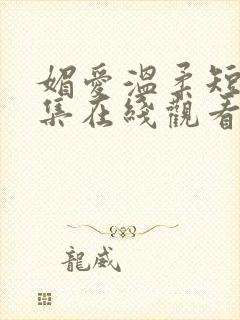 媚愛溫柔短
集在綫觀看
龍威